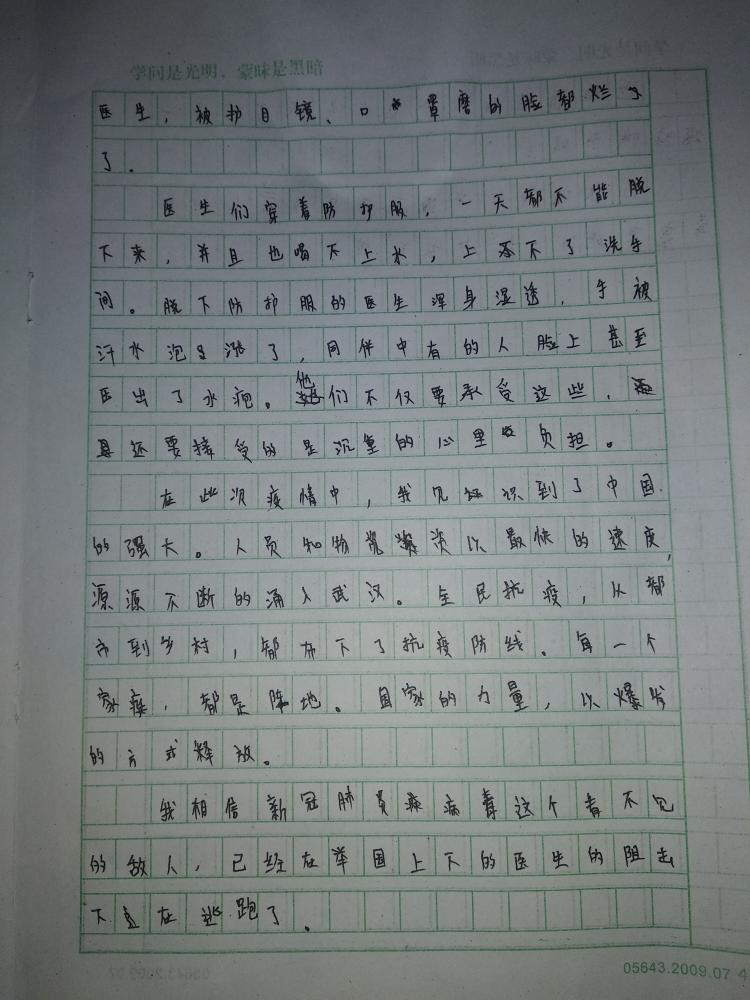 学问是光明,蒙昧是黑暗
医生,被护目镜、口罩磨的脸都烂了
了。
医生们穿着防护服,一天都不能脱
下来,并且也喝不上水,上不了洗手
间。脱下防护服的医生浑身湿透,手被
汗水泡涨了,同伴中有的人脸上甚至
压出了水疱。他们不仅要承受这些,
且还要接受的是沉重的心里负担。
在此次疫情中,我见识到了中国
的强大。人员和物资以最快的速度,
源源不断的涌入武汉。全民抗疫,从都
市到乡村,都布下了抗疫防线。每一个
家庭,都是阵地。国家的力量,以爆发
的方式释放。
我相信新冠肺炎病毒这个看不见
的敌人,已经在举国上下的医生的阻击
下正在逃跑了。
05643.2009.07